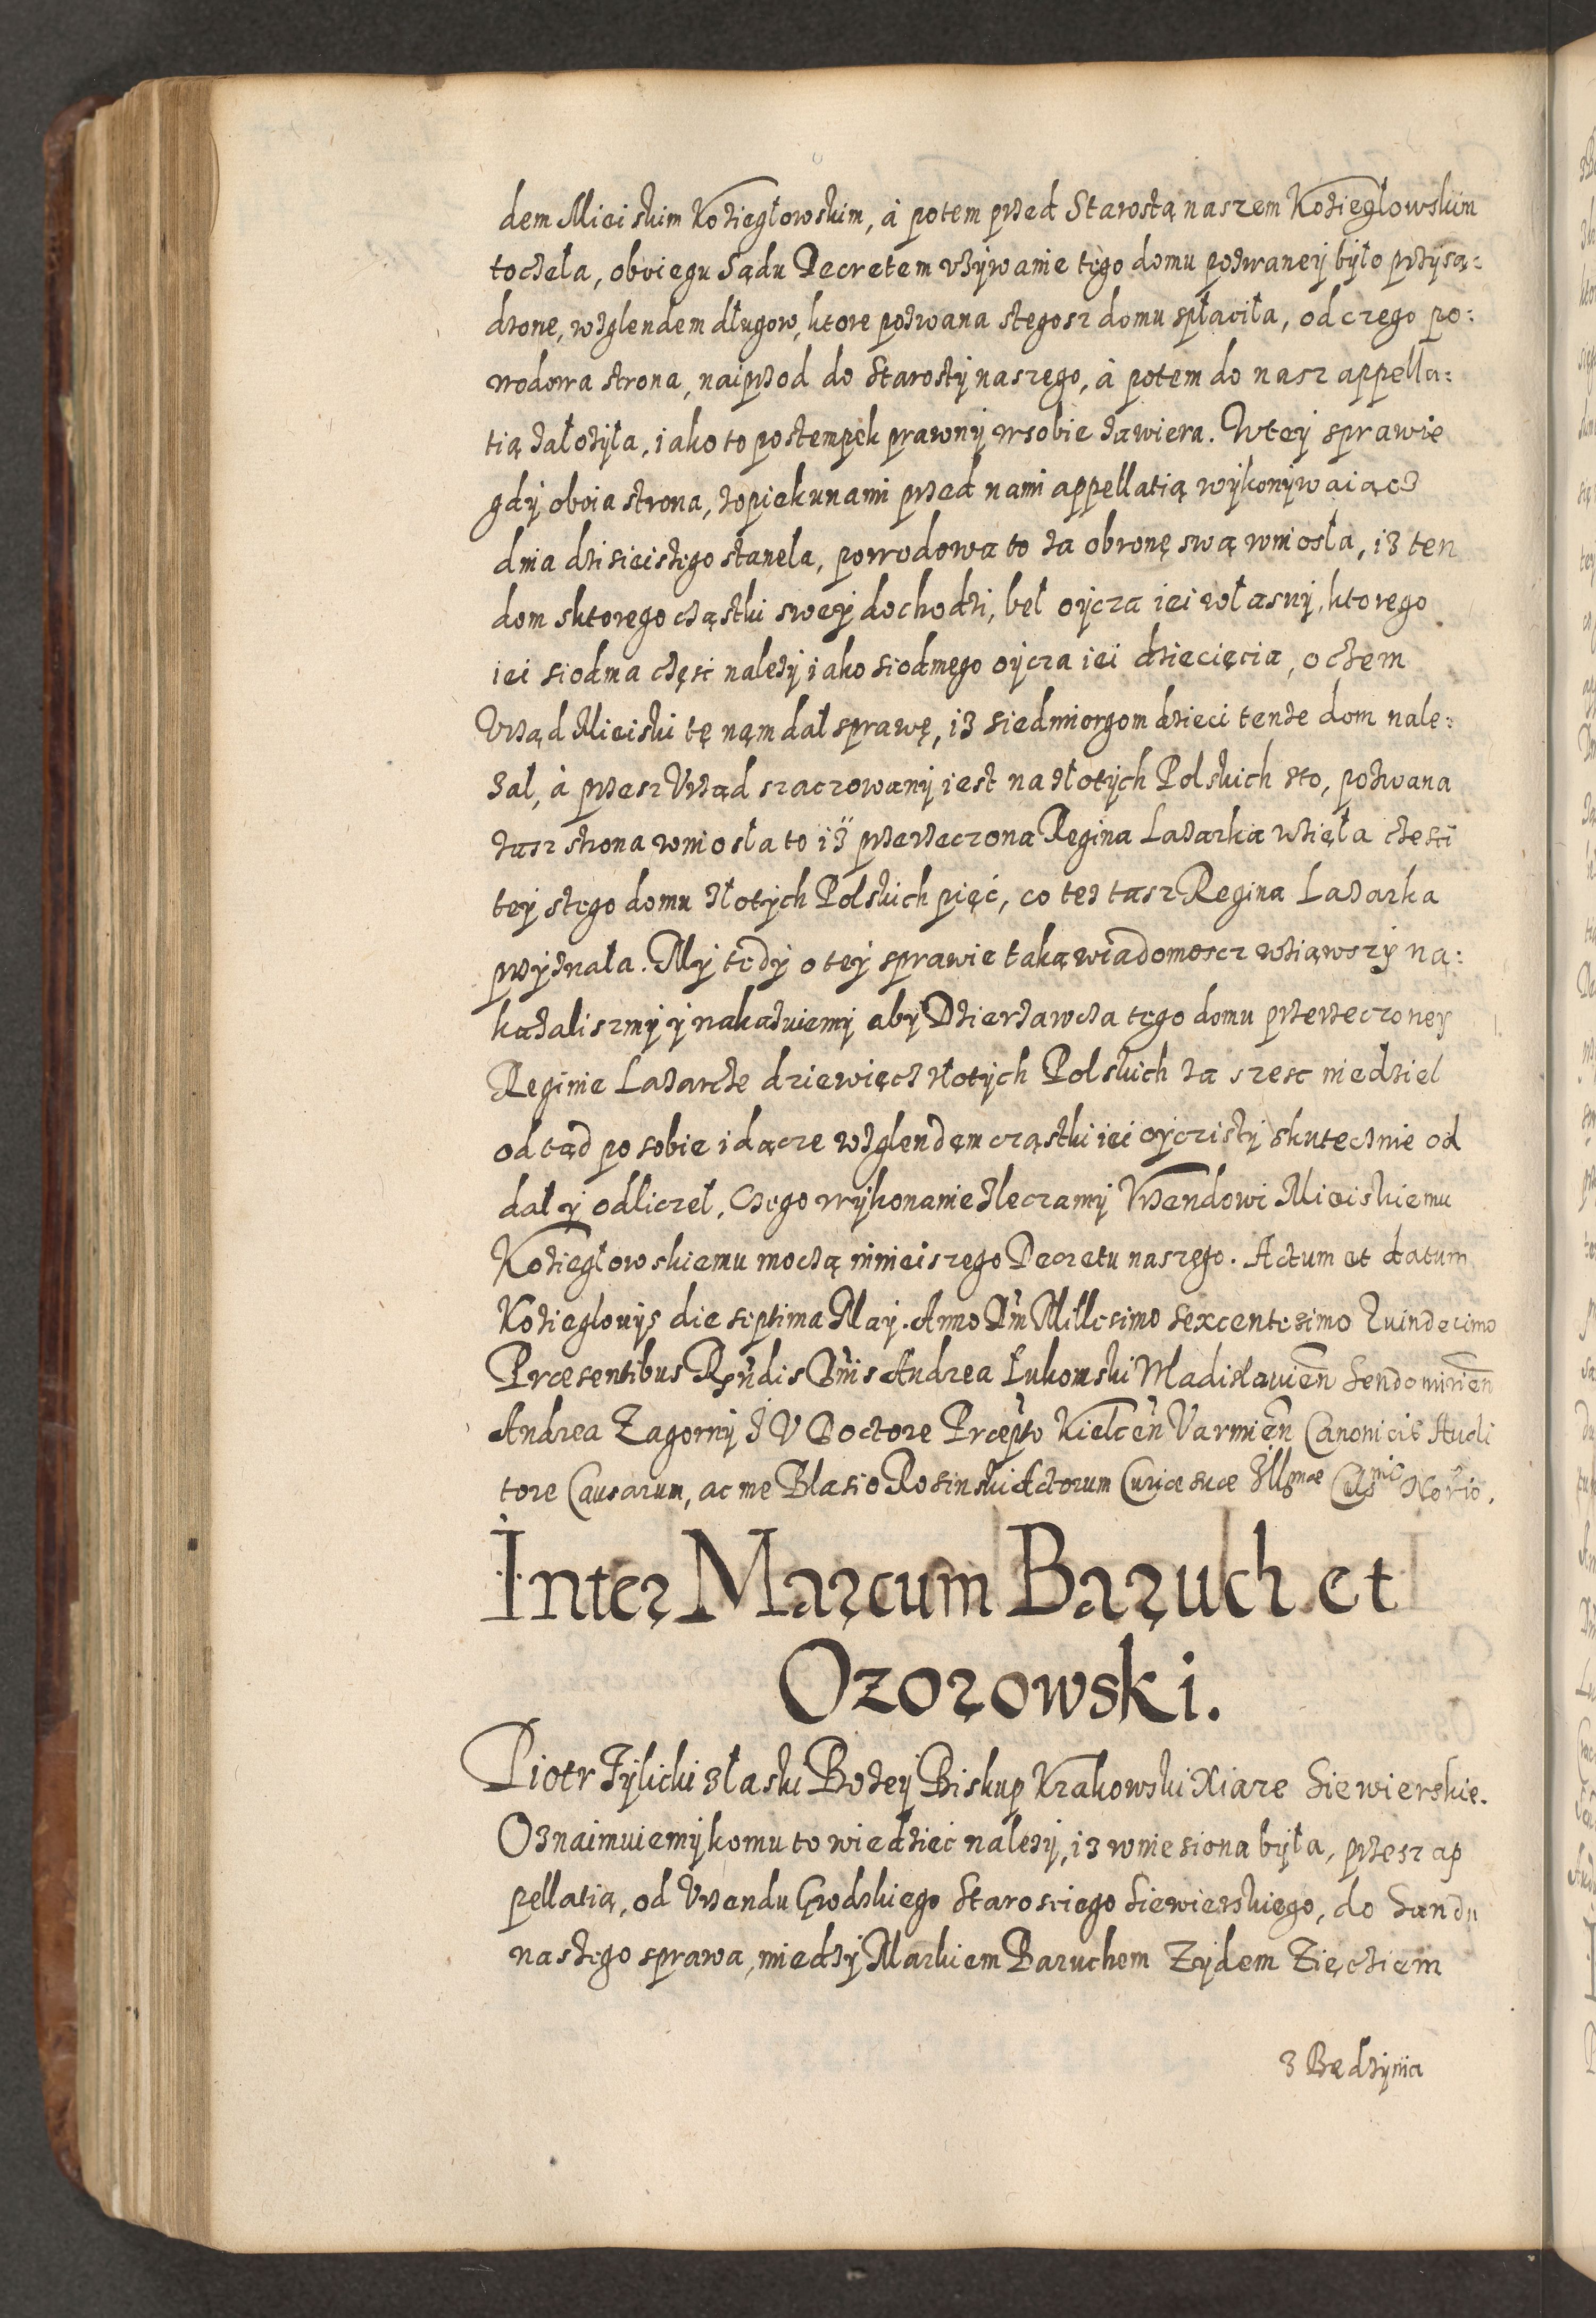 dem Mieiskim Koziegłowskim, à potem przed Starostą naszem Koziegłowskim
toczeła, oboiegu Sądu Decretem vżywanie tego domu pozwaney było przysą:
dzone, wzglendem długow, ktore pozwana stegosz domu spłaciła, od czego po:
wodowa strona, naiprzod do Starosty naszego, à potem do nasz appella:
tią założyła, iako to postempek prawny wsobie zawiera. W tey sprawie
gdy oboia strona, zopiekunami przed nami appellatią wykonywaiącz
dnia dzisieiszego stanela, powodowa to za obronę swą wniosła, iz ten
dom sktorego cząstki swey dochodzi, beł oycza iei własny, ktorego
iei siodma częsc należy iako siodmego oycza iei dziecięcia, o czem
Vrząd Mieiski tę nąm dał sprawę, iz siedmiorgom dzieci tenże dom nale:
zał, à przesz Vrząd szaczowany iest na złotych Polskich sto, pozwana
zasz strona wniosła to iż przerzeczona Regina Lazarka wzięła części
tey stego domu złotych Polskich pięć, co też tasz Regina Lazarka
przyznała. My tedy o tey sprawie taką wiadomoscz wziąwszy na:
kazaliszmy y nakazuiemy aby Dzierzawcza tego domu przerzeczoney
Reginie Lazarcze dziewięcz złotych Polskich za szesc niedziel
od tąd po sobie idącze wzglendęm cząstki iei oyczisty skutecznie od
dał y odliczeł, Czego wykonanie zleczamy Vrzendowi Mieiskiemu
Koziegłowskiemu moczą ninieiszego Decretu naszego. Actum et datum
Kozieglouijs die septima May. Anno Dni Millesimo sexcentesimo Quindecimo
Præsentibus Rndis Dnis Andrea Łukomski Wladislauien Sendomirien
Andrea Zagorny J V Doctore Præpto Kielcen Varmien Canonicis Audi
tore Causarum, ac me Blasio Rosinski Actorum Curiæ suæ Illmæ Celsnis Notrio.
Inter Marcum Baruch et
Ozorowski.
Piotr Tylicki złaski Bozey Biskup Krakowski Xiąze Siewierskie.
Oznaimuiemy komu to wiedzieć należy, iz wniesiona była, przesz ap
pellatią, od Vrzendu Grodzkiego Starosciego Siewierskiego, do Sandu
naszego sprawa, miedzy Markiem Baruchem Zydem Zięcziem
z Będzynia